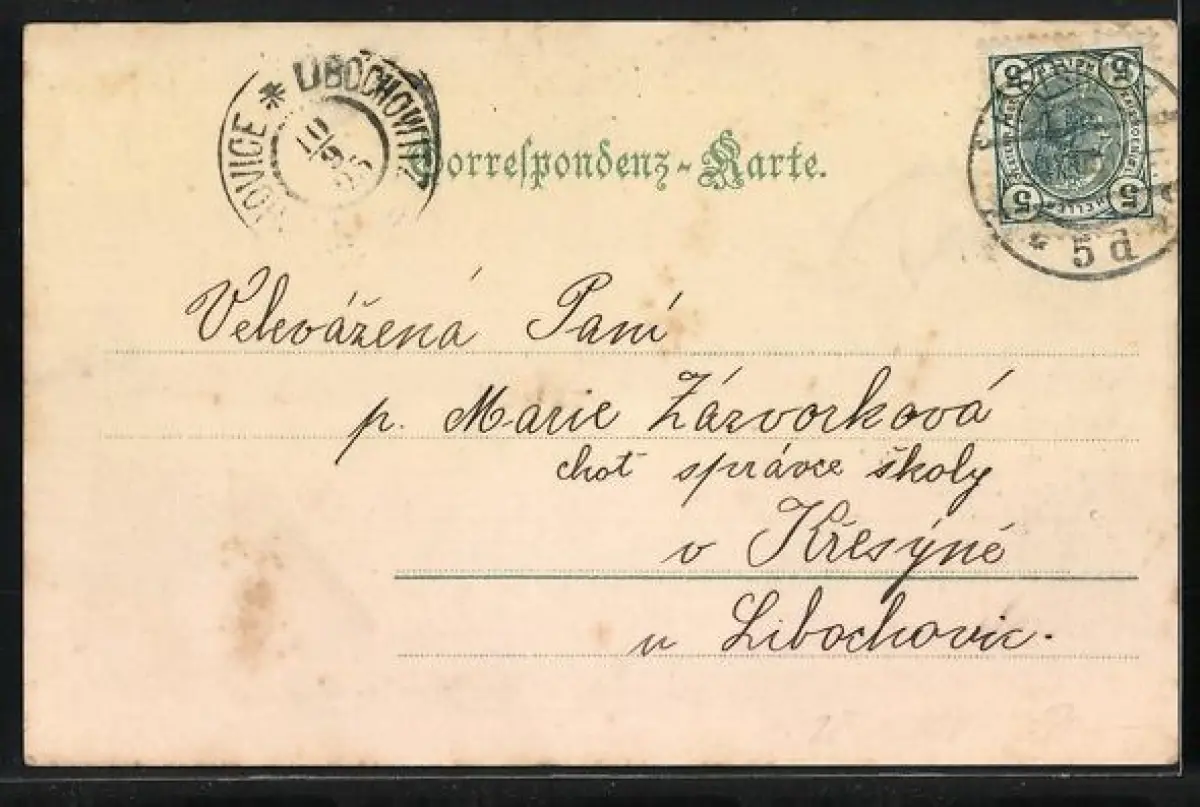 LIBOCHOWITZ *
HOVICE
10/9
Correspondenz-Karte.
5 5
5 5
HELLER
* 5 d
Velevážená Paní
p. Marie Zázvorková
choť správce školy
v Křesýně
u Libochovic.